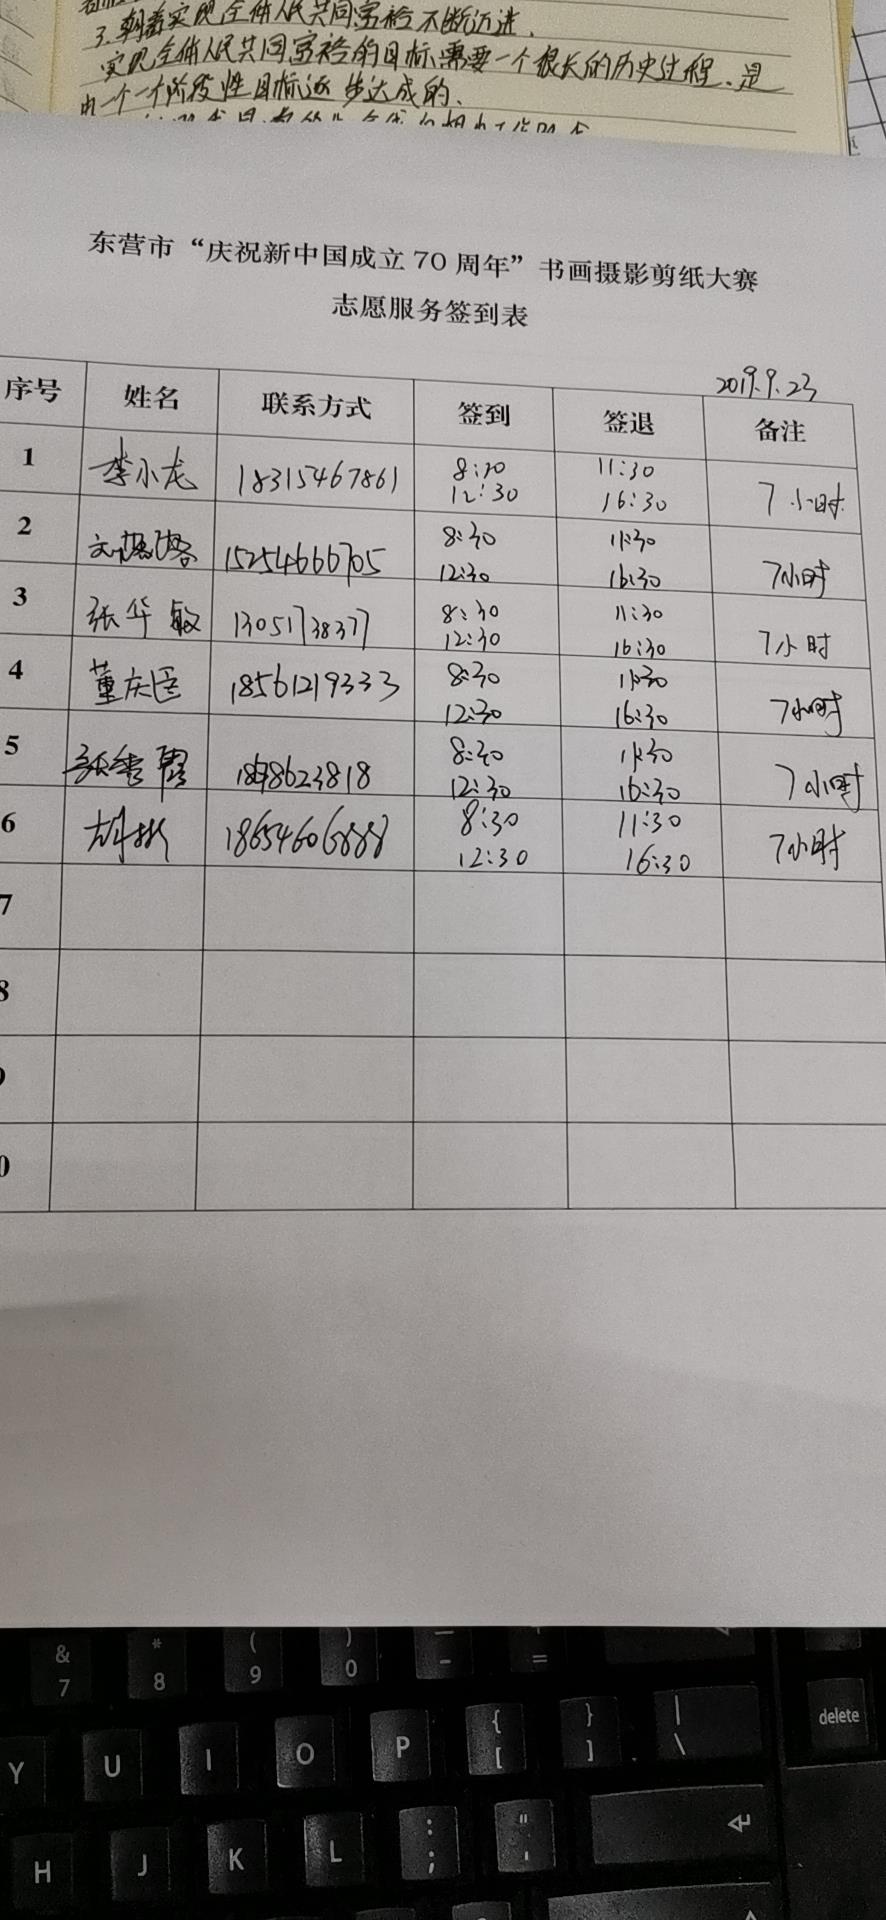 3.朝着实现全体人民共同富裕不断迈进.
实现全体人民共同富裕的目标,需要一个很长的历史过程,是
由一个一个阶段性目标逐步达成的、
东营市“庆祝新中国成立 70 周年”书画摄影剪纸大赛
志愿服务签到表
2019.9.23
序号 姓名 联系方式 签到 签退 备注
1 李小龙 18315467861 8:30 11:30 7小时
12:30 16:30
2 15254666705 8:30 11:30 7小时
12:30 16:30
3 张华敏 13051738377 8:30 11:30 7小时
12:30 16:30
4 董庆 18561219333 8:30 11:30 7小时
12:30 16:30
5 张秀霞 8:30 11:30 7小时
12:30 16:30
6 胡彬 18654606888 8:30 11:30 7小时
12:30 16:30
7
8
0
& * ( ) _ +
7 8 9 0 - =
{ } | delete
Y U I O P [ ] \
: "
H J K L ; '